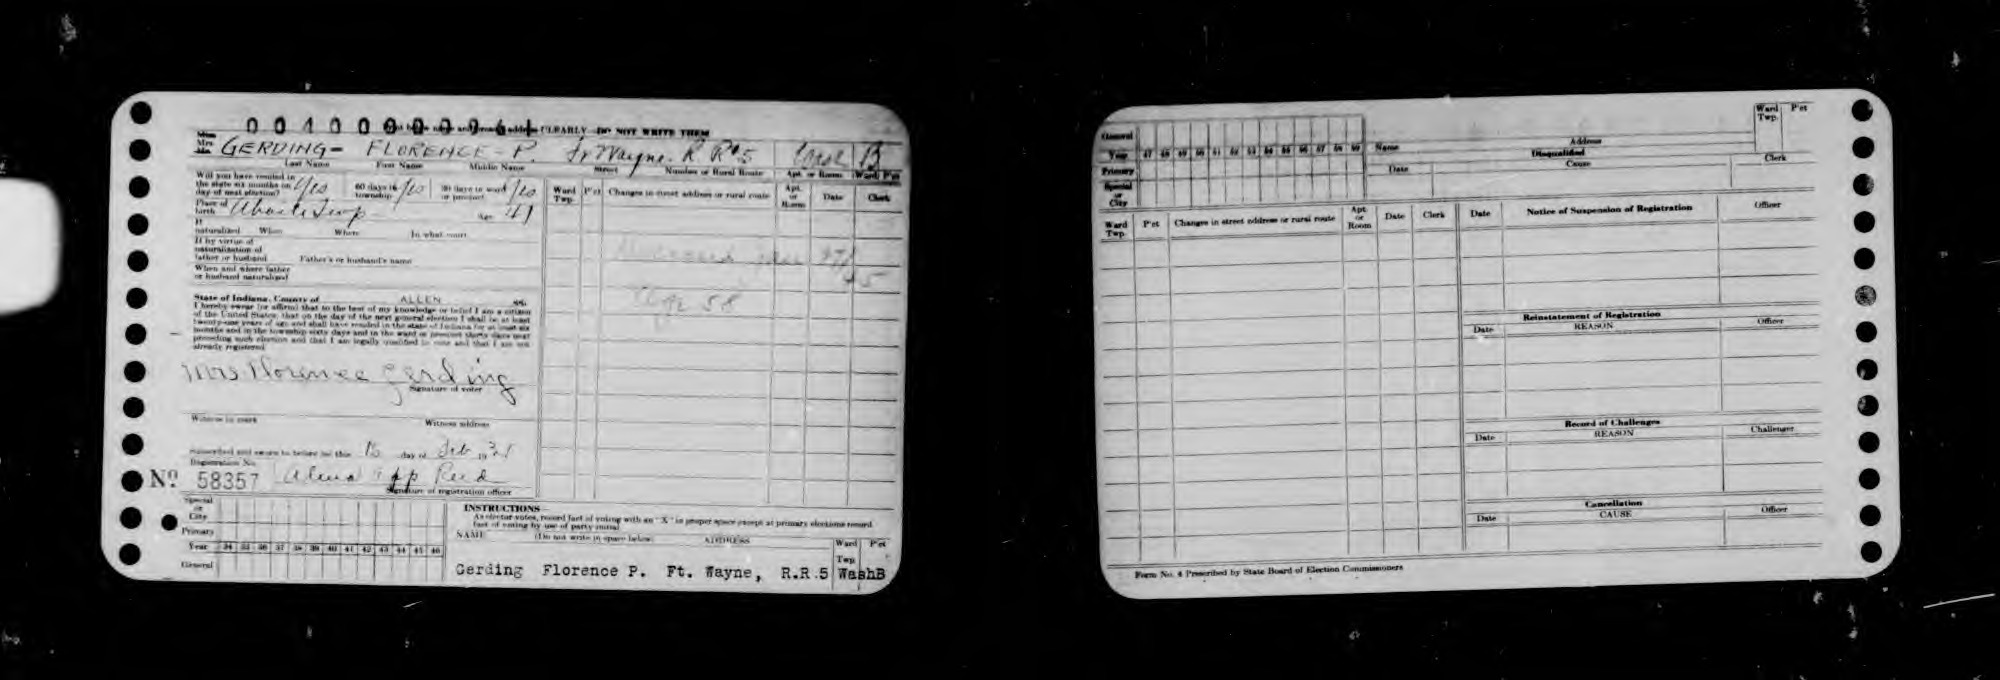 Print below name and present address CLEARLY—DO NOT WRITE THEM
Miss
Mrs
Mr.
GERDING- FLORENCE-P. Ft Wayne. R R#5 Wash B
Last Name First Name Middle Name Street Number or Rural Route Apt. or Room Ward P'ct
Will you have resided in
the state six months on
day of next election? Yes
60 days in
township Yes
30 days in ward
or precinct Yes
Place of
birth Age 41
If
naturalized When Where In what court
If by virtue of
naturalization of
father or husband Father's or husband's name
When and where father
or husband naturalized
State of Indiana, County of ALLEN ss.
I hereby swear (or affirm) that to the best of my knowledge or belief I am a citizen
of the United States; that on the day of the next general election I shall be at least
twenty-one years of age and shall have resided in the state of Indiana for at least six
months and in the township sixty days and in the ward or precinct thirty days next
preceding such election and that I am legally qualified to vote and that I am not
already registered
Mrs. Florence Gerding
Signature of voter
Witness to mark Witness address
Subscribed and sworn to before me this 15 day of Feb 19
Registration No.
Nº 58357
Signature of registration officer
Ward
Twp. P'ct Changes in street address or rural route Apt.
or
Room Date Clerk
Deceased June
Age 58
Special
or
City
Primary
Year 34 35 36 37 38 39 40 41 42 43 44 45 46
General
INSTRUCTIONS—
As elector votes, record fact of voting with an "X" in proper space except at primary elections record
fact of voting by use of party initial
NAME (Do not write in space below) ADDRESS Ward
Twp P'ct
Gerding Florence P. Ft. Wayne, R.R.5 WashB
General
Year 47 48 49 50 51 52 53 54 55 56 57 58 59
Primary
Special
or
City
Name Address Ward
Twp. P'ct
Disqualified
Date Cause Clerk
Ward
Twp. P'ct Changes in street address or rural route Apt.
or
Room Date Clerk
Date Notice of Suspension of Registration Officer
Reinstatement of Registration
Date REASON Officer
Record of Challenges
Date REASON Challenger
Cancellation
Date CAUSE Officer
Form No. 4 Prescribed by State Board of Election Commissioners